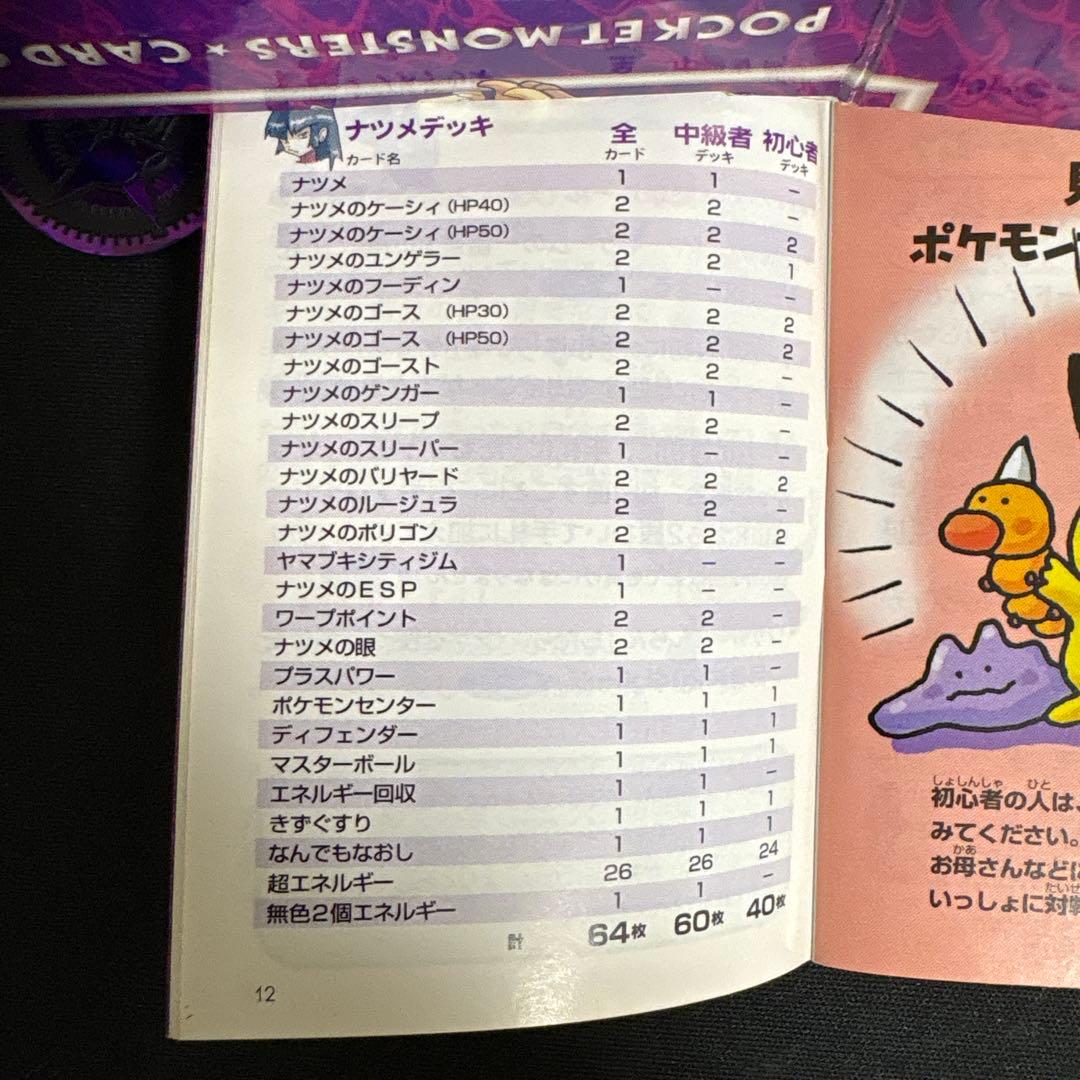 POCKET MONSTERS ★ CARD
ナツメデッキ 全 中級者 初心者
カード名 カード デッキ デッキ
ナツメ 1 1 –
ナツメのケーシィ (HP40) 2 2 –
ナツメのケーシィ (HP50) 2 2 2
ナツメのユンゲラー 2 2 1
ナツメのフーディン 1 – –
ナツメのゴース (HP30) 2 2 2
ナツメのゴース (HP50) 2 2 2
ナツメのゴースト 2 2 –
ナツメのゲンガー 1 1 –
ナツメのスリープ 2 2 –
ナツメのスリーパー 1 – –
ナツメのバリヤード 2 2 2
ナツメのルージュラ 2 2 –
ナツメのポリゴン 2 2 2
ヤマブキシティジム 1 – –
ナツメのESP 1 – –
ワープポイント 2 2 –
ナツメの眼 2 2 –
プラスパワー 1 1 –
ポケモンセンター 1 1 1
ディフェンダー 1 1 1
マスターボール 1 1 1
エネルギー回収 1 1 –
きずぐすり 1 1 1
なんでもなおし 1 1 1
超エネルギー 26 26 24
無色2個エネルギー 1 1 –
計 64枚 60枚 40枚
12
ポケモン
しょしんしゃ ひと
初心者の人は、
みてください。
かあ
お母さんなどに
たいせ
いっしょに対戦